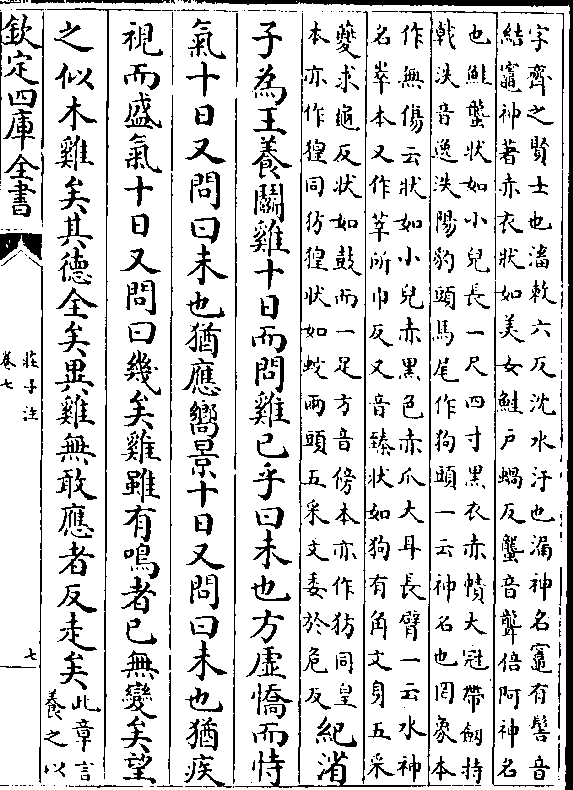 字齊之賢士也潘敕六反沈水汙也漏神名竈有髻音
結竈神著赤衣狀如美女鮭戶蝸反蠪音聾倍阿神名
也鮭蠪狀如小兒長一尺四寸黑衣赤幘大冠帶劒持
戟泆音逸泆陽豹頭馬尾作狗頭一云神名也罔象本
作無傷云狀如小兒赤黑色赤爪大耳長臂一云水神
名峷本又作莘所巾反又音臻狀如狗有角文身五采
夔求龜反狀如鼓而一足方音傍本亦作彷同皇
本亦作徨同彷徨狀如蛇兩頭五采文委於危反
紀渻
子為王養鬭雞十日而問雞已乎曰未也方虛憍而恃
氣十日又問曰未也猶應嚮景十日又問曰未也猶疾
視而盛氣十日又問曰幾矣雞雖有鳴者已無變矣望
之似木雞矣其德全矣異雞無敢應者反走矣
此章言
養之以
欽定四庫全書
莊子注
卷七
七